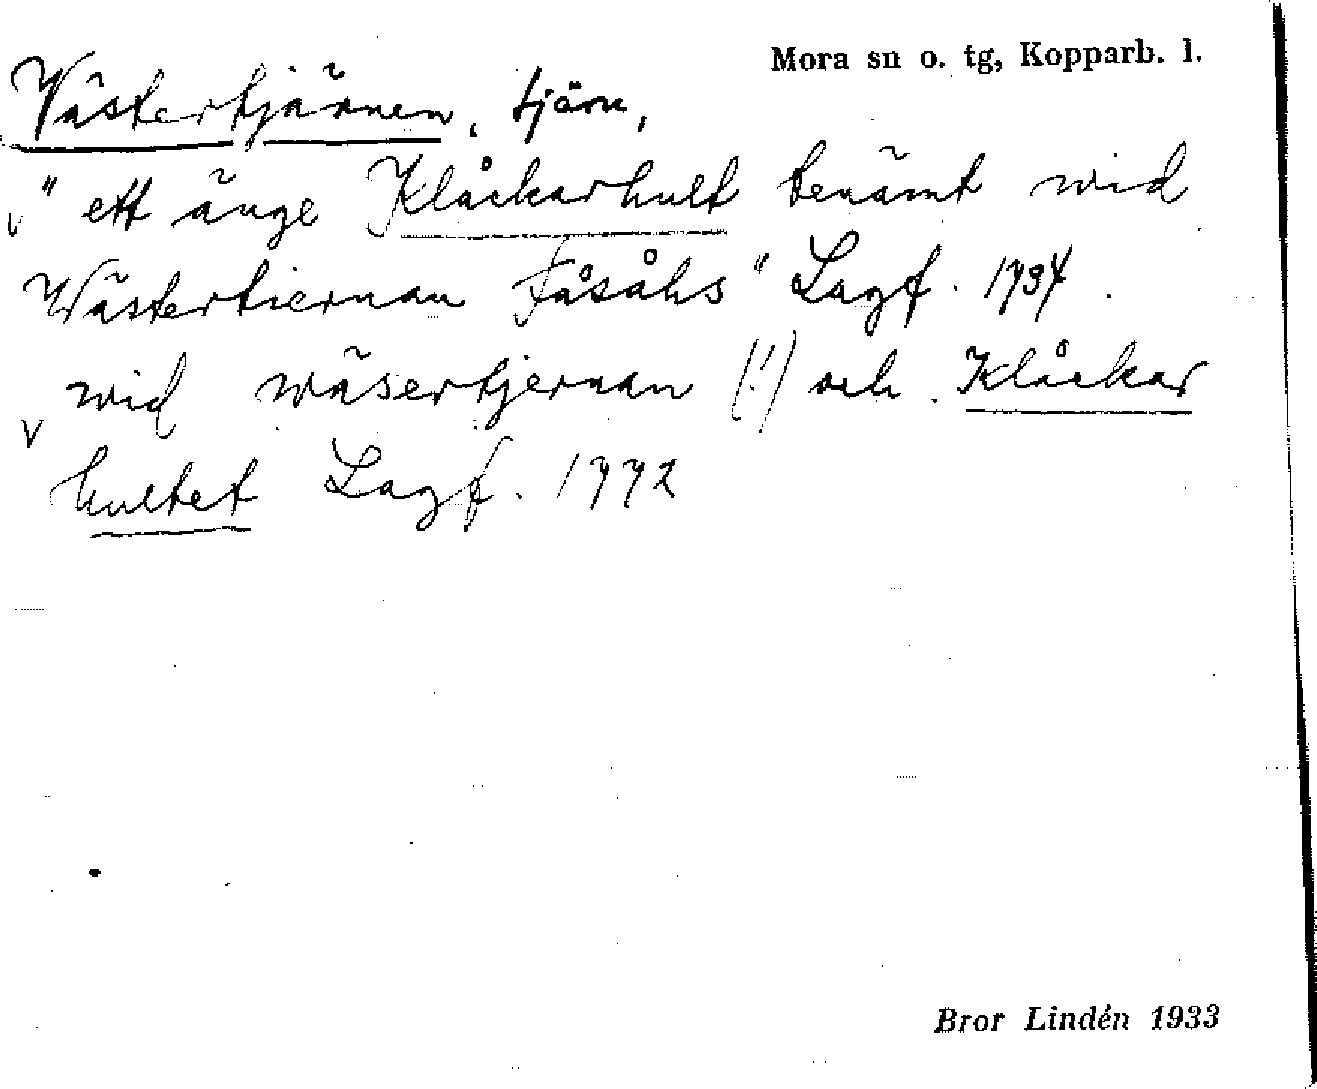 Mora sn o. tg, Kopparb. l.
Västertjärnen, tjärn,
v " ett änge Klåckarhult benämt wid
Wästertiernan Fåsåhs" Lagf. 1734.
v wid wäsertjernan (!) och Klåckar
hultet Lagf. 1772
Bror Lindén 1933